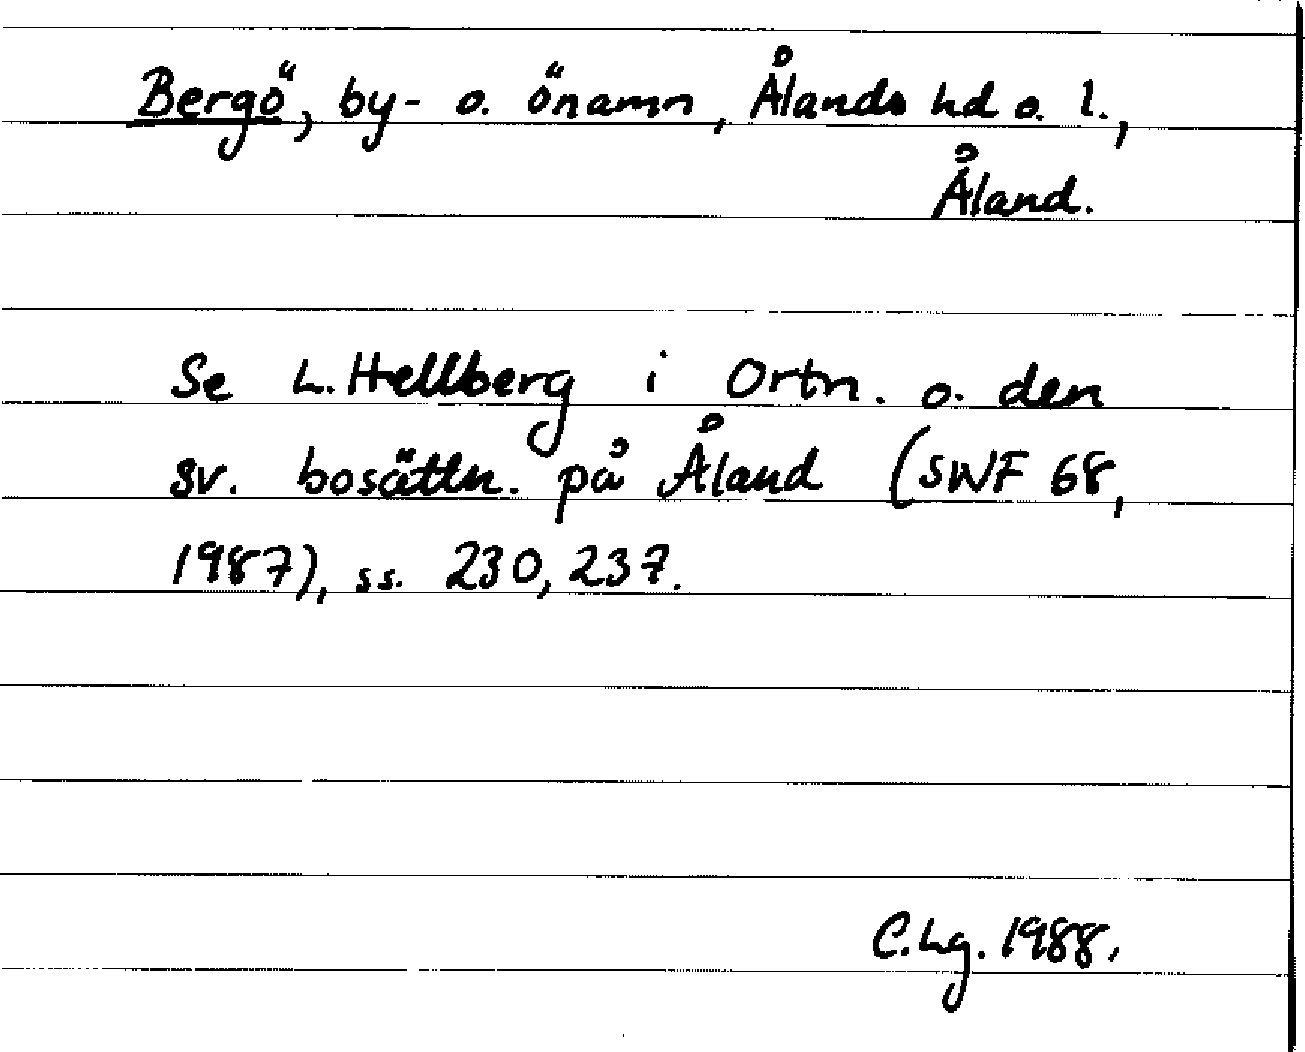 Bergö, by- o. önamn, Ålands hd o. l.,
Åland.
Se L. Hellberg i Ortn. o. den
sv. bosättn. på Åland (SNF 68,
1987), ss. 230, 237.
C.Lg. 1988.